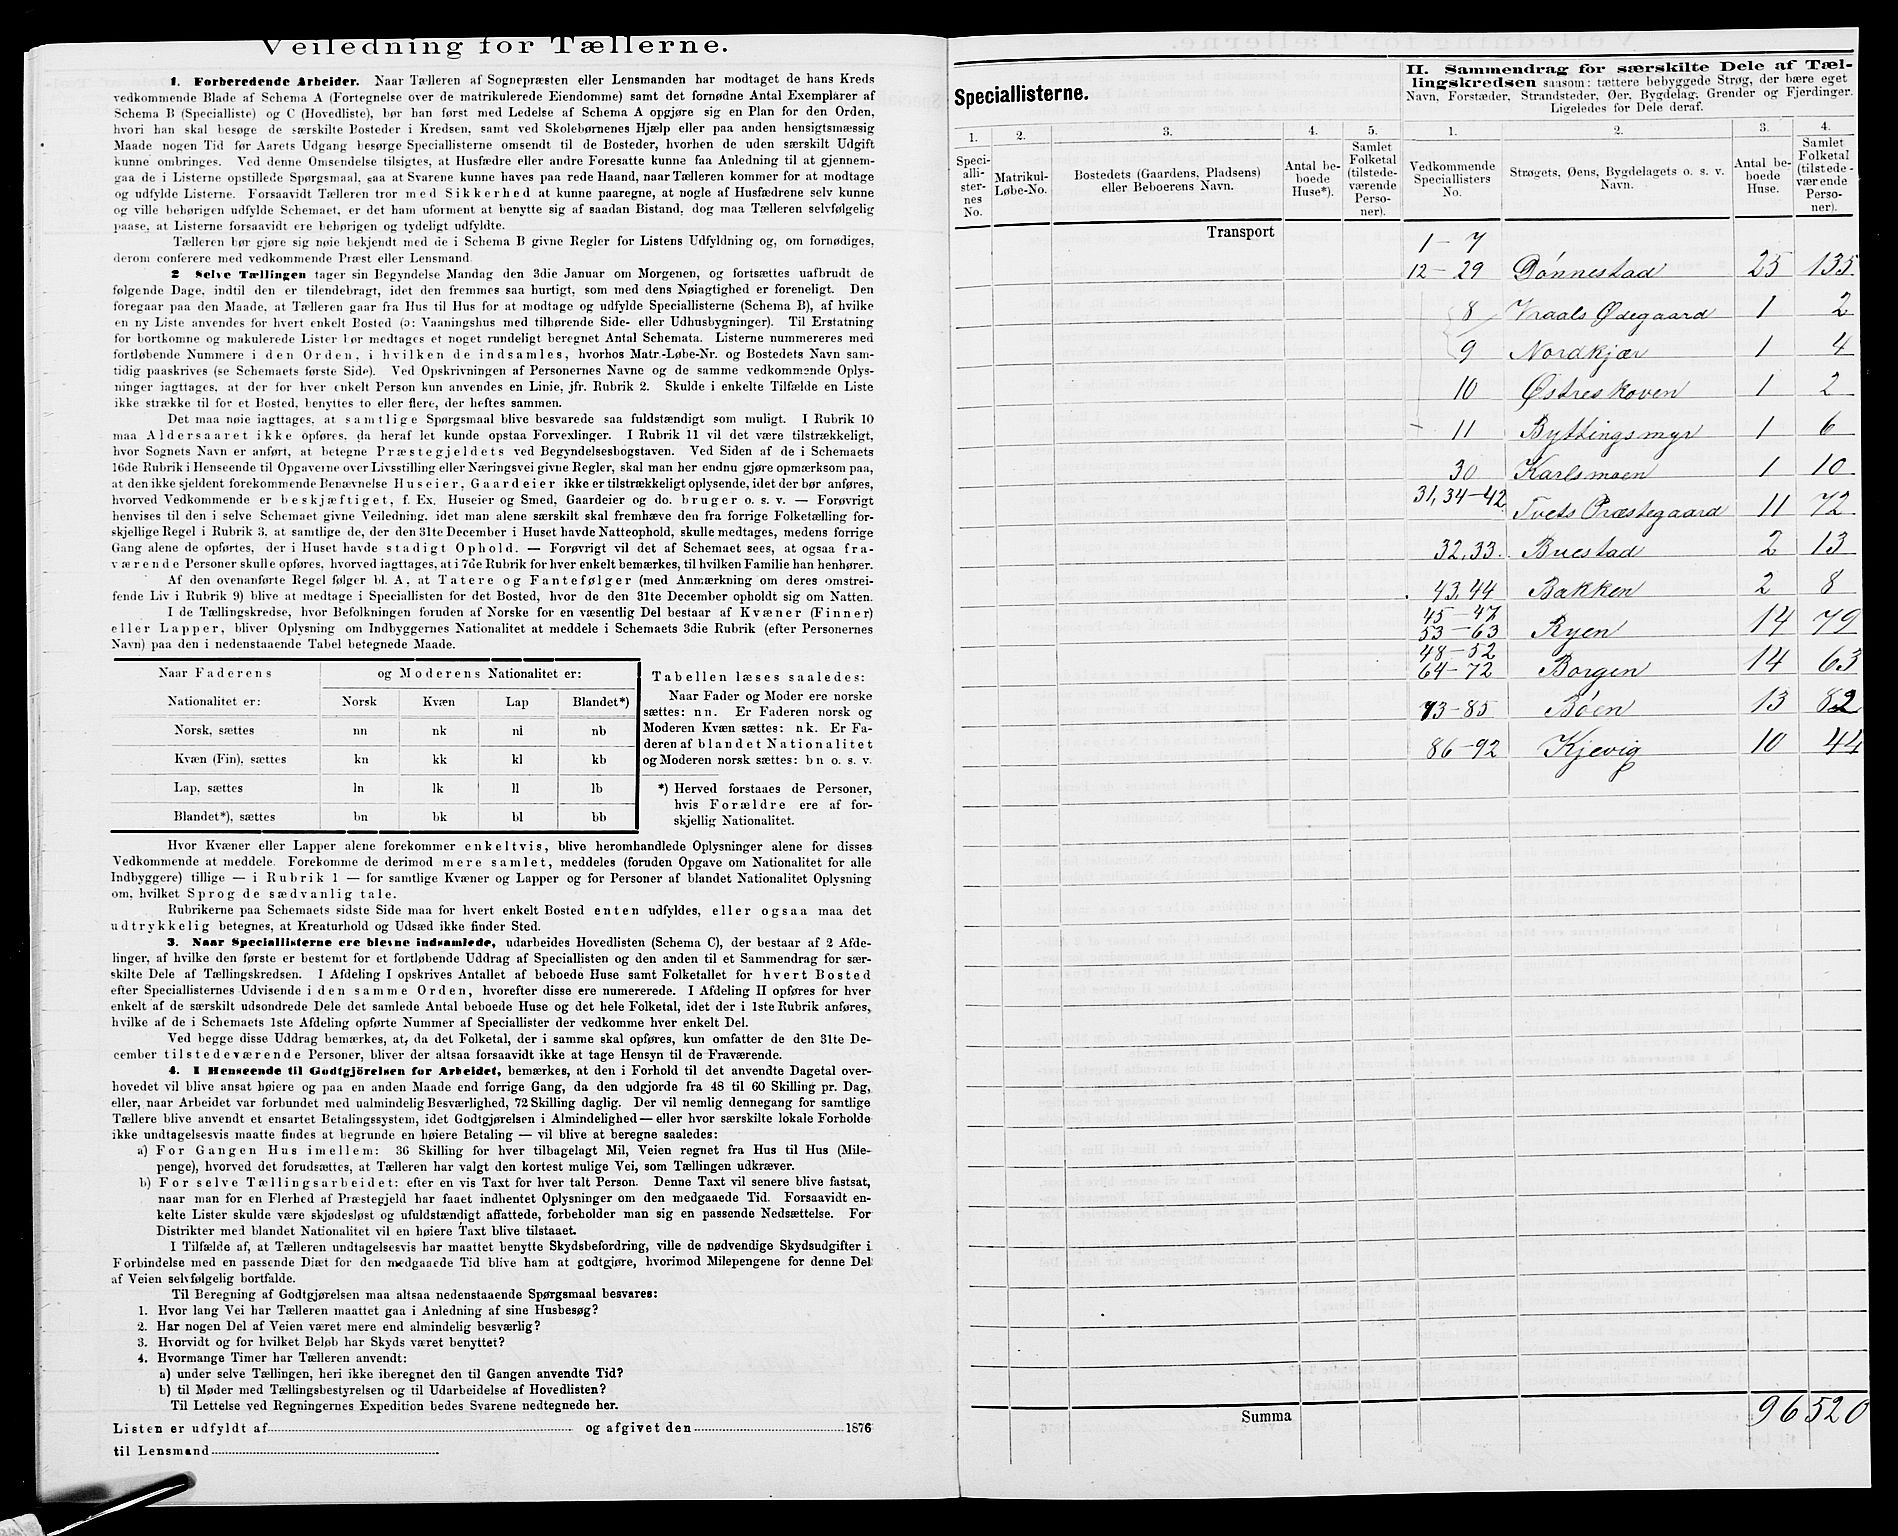 Veiledning for Tællerne.
1. Forberedende Arbeider. Naar Tælleren af Sognepræsten eller Lensmanden har modtaget de hans Kreds
vedkommende Blade af Schema A (Fortegnelse over de matrikulerede Eiendomme) samt det fornødne Antal Exemplarer af
Schema B (Specialliste) og C (Hovedliste), bør han først med Ledelse af Schema A opgjøre sig en Plan for den Orden,
hvori han skal besøge de særskilte Bosteder i Kredsen, samt ved Skolebørnenes Hjælp eller paa anden hensigtsmæssig
Maade nogen Tid før Aarets Udgang besørge Speciallisterne omsendt til de Bosteder, hvorhen de uden særskilt Udgift
kunne ombringes. Ved denne Omsendelse tilsigtes, at Husfædre eller andre Foresatte kunne faa Anledning til at gjennem-
gaa de i Listerne opstillede Spørgsmaal, saa at Svarene kunne haves paa rede Haand, naar Tælleren kommer for at modtage
og udfylde Listerne. Forsaavidt Tælleren tror med Sikkerhed at kunne paaregne, at nogle af Husfædrene selv kunne
og ville behørigen udfylde Schemaet, er det ham uforment at benytte sig af saadan Bistand, dog maa Tælleren selvfølgelig
paase, at Listerne forsaavidt ere behørigen og tydeligt udfyldte.
Tælleren bør gjøre sig nøie bekjendt med de i Schema B givne Regler for Listens Udfyldning og, om fornødiges,
derom conferere med vedkommende Præst eller Lensmand.
2 Selve Tællingen tager sin Begyndelse Mandag den 3die Januar om Morgenen, og fortsættes uafbrudt de
følgende Dage, indtil den er tilendebragt, idet den fremmes saa hurtigt, som med dens Nøiagtighed er foreneligt. Den
foregaar paa den Maade, at Tælleren gaar fra Hus til Hus for at modtage og udfylde Speciallisterne (Schema B), af hvilke
en ny Liste anvendes for hvert enkelt Bosted (ɔ: Vaaningshus med tilhørende Side- eller Udhusbygninger). Til Erstatning
for bortkomne og makulerede Lister bør medtages et noget rundeligt beregnet Antal Schemata. Listerne nummereres med
fortløbende Nummere i den Orden, i hvilken de indsamles, hvorhos Matr.-Løbe-Nr. og Bostedets Navn sam-
tidig paaskrives (se Schemaets første Side). Ved Opskrivningen af Personernes Navne og de samme vedkommende Oplys-
ninger iagttages, at der for hver enkelt Person kun anvendes en Linie, jfr. Rubrik 2. Skulde i enkelte Tilfælde en Liste
ikke strække til for et Bosted, benyttes to eller flere, der heftes sammen.
Det maa nøie iagttages, at samtlige Spørgsmaal blive besvarede saa fuldstændigt som muligt. I Rubrik 10
maa Aldersaaret ikke opføres, da heraf let kunde opstaa Forvexlinger. I Rubrik 11 vil det være tilstrækkeligt,
hvor Sognets Navn er anført, at betegne Præstegjeldets ved Begyndelsesbogstaven. Ved Siden af de i Schemaets
16de Rubrik i Henseende til Opgaverne over Livsstilling eller Næringsvei givne Regler, skal man her endnu gjøre opmærksom paa,
at den ikke sjeldent forekommende Benævnelse Huseier, Gaardeier ikke er tilstrækkeligt oplysende, idet der bør anføres,
hvorved Vedkommende er beskjæftiget, f. Ex. Huseier og Smed, Gaardeier og do. bruger o. s. v. — Forøvrigt
henvises til den i selve Schemaet givne Veiledning, idet man alene særskilt skal fremhæve den fra forrige Folketælling for-
skjellige Regel i Rubrik 3, at samtlige de, der den 31te December i Huset havde Natteophold, skulle medtages, medens forrige
Gang alene de opførtes, der i Huset havde stadigt Ophold. — Forøvrigt vil det af Schemaet sees, at ogsaa fra-
værende Personer skulle opføres, hvorved iagttages, at i 7de Rubrik for hver enkelt bemærkes, til hvilken Familie han henhører.
Af den ovenanførte Regel følger bl. A. at Tatere og Fantefølger (med Anmærkning om deres omstrei-
fende Liv i Rubrik 9) blive at medtage i Speciallisten for det Bosted, hvor de den 31te December opholdt sig om Natten.
I de Tællingskredse, hvor Befolkningen foruden af Norske for en væsentlig Del bestaar af Kvæner (Finner)
eller Lapper, bliver Oplysning om Indbyggernes Nationalitet at meddele i Schemaets 3die Rubrik (efter Personernes
Navn) paa den i nedenstaaende Tabel betegnede Maade.
Naar Faderens og Moderens Nationalitet er:
Nationalitet er: Norsk Kvæn Lap Blandet*)
Norsk, sættes nn nk nl nb
Kvæn (Fin), sættes kn kk kl kb
Lap, sættes ln lk ll lb
Blandet*), sættes bn bk bl bb
Tabellen læses saaledes:
Naar Fader og Moder ere norske
sættes: nn. Er Faderen norsk og
Moderen Kvæn sættes: nk. Er Fa-
deren af blandet Nationalitet
og Moderen norsk sættes: bn o. s. v.
*) Herved forstaaes de Personer,
hvis Forældre ere af for-
skjellig Nationalitet.
Hvor Kvæner eller Lapper alene forekommer enkeltvis, blive heromhandlede Oplysninger alene for disses
Vedkommende at meddele. Forekomme de derimod mere samlet, meddeles (foruden Opgave om Nationalitet for alle
Indbyggere) tillige — i Rubrik 1 — for samtlige Kvæner og Lapper og for Personer af blandet Nationalitet Oplysning
om, hvilket Sprog de sædvanlig tale.
Rubrikerne paa Schemaets sidste Side maa for hvert enkelt Bosted enten udfyldes, eller ogsaa maa det
udtrykkelig betegnes, at Kreaturhold og Udsæd ikke finder Sted.
3. Naar Speciallisterne ere blevne indsamlede, udarbeides Hovedlisten (Schema C), der bestaar af 2 Afde-
linger, af hvilke den første er bestemt for et fortløbende Uddrag af Speciallisten og den anden til et Sammendrag for sær-
skilte Dele af Tællingskredsen. I Afdeling I opskrives Antallet af beboede Huse samt Folketallet for hvert Bosted
efter Speciallisternes Udvisende i den samme Orden, hvorefter disse ere numererede. I Afdeling II opføres for hver
enkelt af de særskilt udsondrede Dele det samlede Antal beboede Huse og det hele Folketal, idet der i 1ste Rubrik anføres,
hvilke af de i Schemaets 1ste Afdeling opførte Nummer af Speciallister der vedkomme hver enkelt Del.
Ved begge disse Uddrag bemærkes, at, da det Folketal, der i samme skal opføres, kun omfatter de den 31te De-
cember tilstedeværende Personer, bliver der altsaa forsaavidt ikke at tage Hensyn til de Fraværende.
4. I Henseende til Godtgjörelsen for Arbeidet, bemærkes, at den i Forhold til det anvendte Dagetal over-
hovedet vil blive ansat høiere og paa en anden Maade end forrige Gang, da den udgjorde fra 48 til 60 Skilling pr. Dag,
eller, naar Arbeidet var forbundet med ualmindelig Besværlighed, 72 Skilling daglig. Der vil nemlig dennegang for samtlige
Tællere blive anvendt et ensartet Betalingssystem, idet Godtgjørelsen i Almindelighed — eller hvor særskilte lokale Forholde
ikke undtagelsesvis maatte findes at begrunde en høiere Betaling — vil blive at beregne saaledes:
a) For Gangen Hus imellem: 36 Skilling for hver tilbagelagt Mil, Veien regnet fra Hus til Hus (Mile-
penge), hvorved det forudsættes, at Tælleren har valgt den kortest mulige Vei, som Tællingen udkræver.
b) For selve Tællingsarbeidet: efter en vis Taxt for hver talt Person. Denne Taxt vil senere blive fastsat,
naar man for en Flerhed af Præstegjeld har faaet indhentet Oplysninger om den medgaaede Tid. Forsaavidt en-
kelte Lister skulde være skjødesløst og ufuldstændigt affattede, forbeholder man sig en passende Nedsættelse. For
Distrikter med blandet Nationalitet vil en høiere Taxt blive tilstaaet.
I Tilfælde af, at Tælleren undtagelsesvis har maattet benytte Skydsbefordring, ville de nødvendige Skydsudgifter i
Forbindelse med en passende Diæt for den medgaaede Tid blive ham at godtgjøre, hvorimod Milepengene for denne Del
af Veien selvfølgelig bortfalde.
Til Beregning af Godtgjørelsen maa altsaa nedenstaaende Spørgsmaal besvares:
1. Hvor lang Vei har Tælleren maattet gaa i Anledning af sine Husbesøg?
2. Har nogen Del af Veien været mere end almindelig besværlig?
3. Hvorvidt og for hvilket Beløb har Skyds været benyttet?
4. Hvormange Timer har Tælleren anvendt:
a) under selve Tællingen, heri ikke iberegnet den til Gangen anvendte Tid?
b) til Møder med Tællingsbestyrelsen og til Udarbeidelse af Hovedlisten?
Til Lettelse ved Regningernes Expedition bedes Svarene nedtegnede her.
Listen er udfyldt af og afgivet den 1876
til Lensmand
Speciallisterne.
1. 2. 3. 4. 5.
Speci-
alli-
ster-
nes
No.
Matrikul-
Løbe-No.
Bostedets (Gaardens, Pladsens)
eller Beboerens Navn.
Antal be-
boede
Huse*).
Samlet
Folketal
(tilstede-
værende
Perso-
ner).
Transport
Summa
II. Sammendrag for særskilte Dele af Tæl-
lingskredsen saasom: tættere bebyggede Strøg, der bære eget
Navn, Forstæder, Strandsteder, Øer, Bygdelag, Grender og Fjerdinger.
Ligeledes for Dele deraf.
1. 2. 3. 4.
Vedkommende
Speciallisters
No.
Strøgets, Øens, Bygdelagets o. s. v.
Navn.
Antal be-
boede
Huse.
Samlet
Folketal
(tilstede-
værende
Perso-
ner).
1-7
12-29 Dønnestad 25 135
8 Vraals Ødegaard 1 2
9 Nordkjær 1 4
10 Østreskoven 1 2
11 Byttingsmyr 1 6
30 Karlsmoen 1 10
31, 34-42 Tvets Præstegaard 11 72
32, 33. Buestad 2 13
43, 44 Bakken 2 8
45-47
53-63 Ryen 14 79
48-52
64-72 Borgen 14 63
73-85 Bøen 13 82
86-92 Kjevig 10 44
96 520